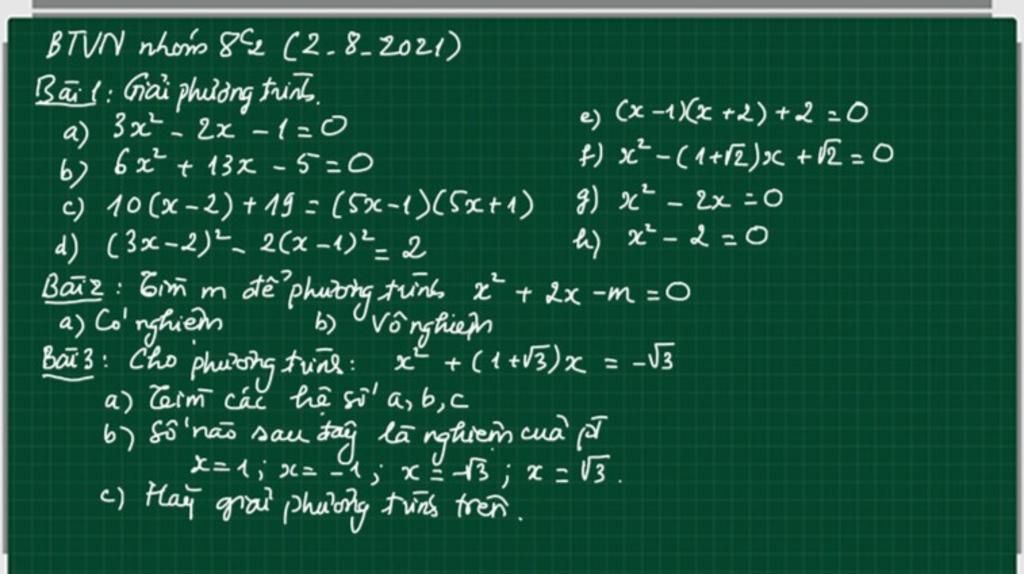 BTVN nhóm 8C2 (2-8-2021)
Bài 1: Giải phương trình.
a) 3x² - 2x - 1 = 0
b) 6x² + 13x - 5 = 0
c) 10(x-2) + 19 = (5x-1)(5x+1)
d) (3x-2)² - 2(x-1)² = 2
e) (x-1)(x+2) + 2 = 0
f) x² - (1+√2)x + √2 = 0
g) x² - 2x = 0
h) x² - 2 = 0
Bài 2: Tìm m để phương trình x² + 2x - m = 0
a) Có nghiệm b) Vô nghiệm
Bài 3: Cho phương trình: x² + (1+√3)x = -√3
a) Tìm các hệ số a, b, c
b) Số nào sau đây là nghiệm của pt
x=1; x=-1; x=-√3; x=√3.
c) Hãy giải phương trình trên.